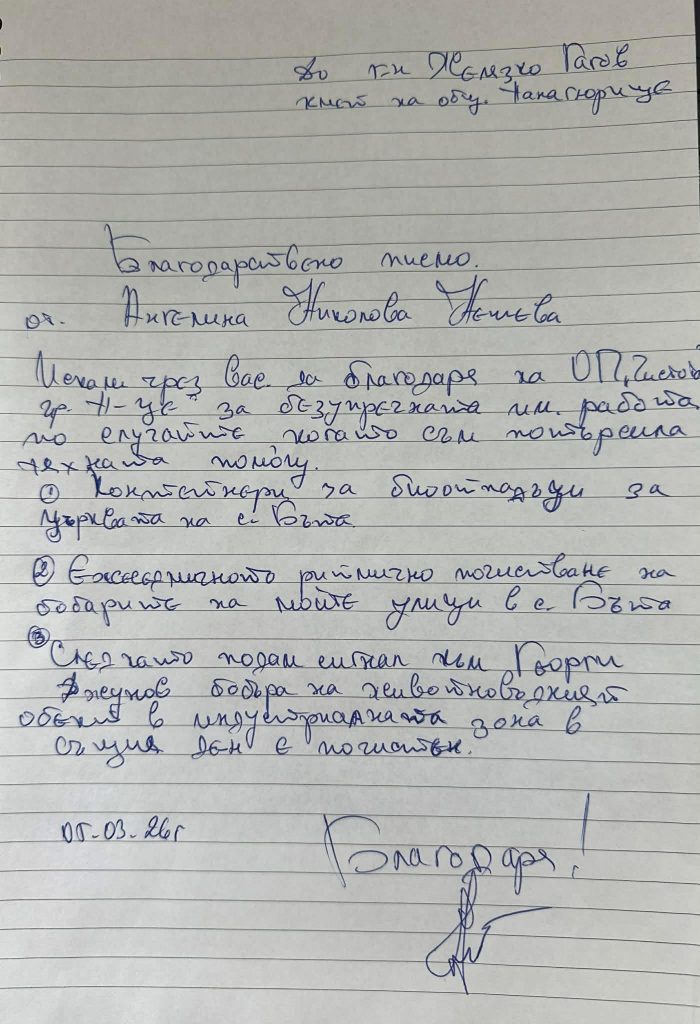 До г-н Желязко Гагов
кмет на общ. Панагюрище
Благодарствено писмо.
от. Ангелина Николова Нешева
Искам чрез Вас да благодаря на ОП "Чистота"
гр. П-ще за безупречната им работа
по случаите когато съм потърсила
тяхната помощ.
① Контейнери за биоотпадъци за
църквата на с. Бъта
② Ежеседмичното ритмично почистване на
бобарите на моите улици в с. Бъта
③ След като подам сигнал към Георги
Джунов бобъра на животновъдният
обект в индустриалната зона в
същия ден е почистен.
05.03.26 г
Благодаря!